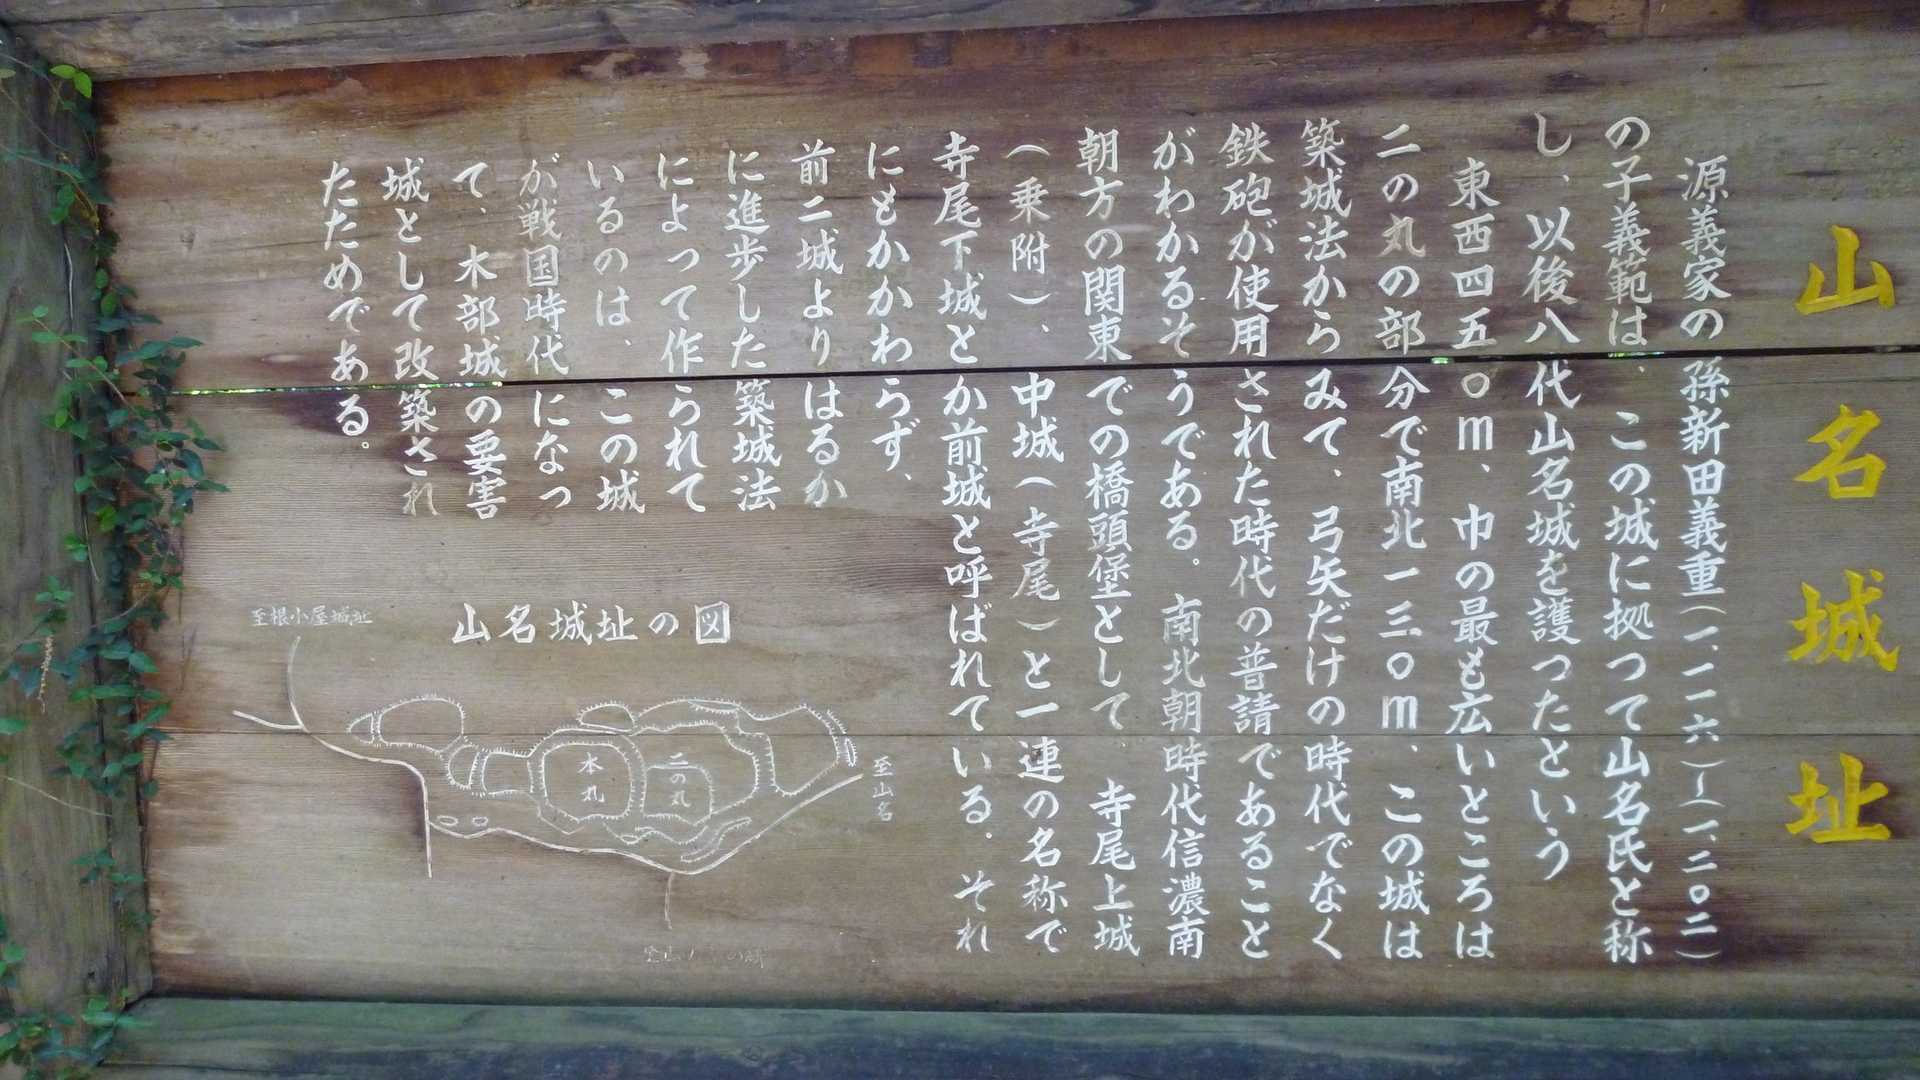 山名城址
源義家の孫新田義重（一、一一六）〜（一、二〇二）
の子義範は、この城に拠つて山名氏と称
し、以後八代山名城を護つたという
東西四五〇m、巾の最も広いところは
二の丸の部分で南北一三〇m、この城は
築城法からみて、弓矢だけの時代でなく
鉄砲が使用された時代の普請であること
がわかるそうである。南北朝時代信濃南
朝方の関東での橋頭堡として、寺尾上城
（乗附）、中城（寺尾）と一連の名称で
寺尾下城とか前城と呼ばれている。それ
にもかかわらず、
前二城よりはるか
に進歩した築城法
によって作られて
いるのは、この城
が戦国時代になっ
て、木部城の要害
城として改築され
たためである。
山名城址の図
至根小屋城址
本丸
二の丸
至山名